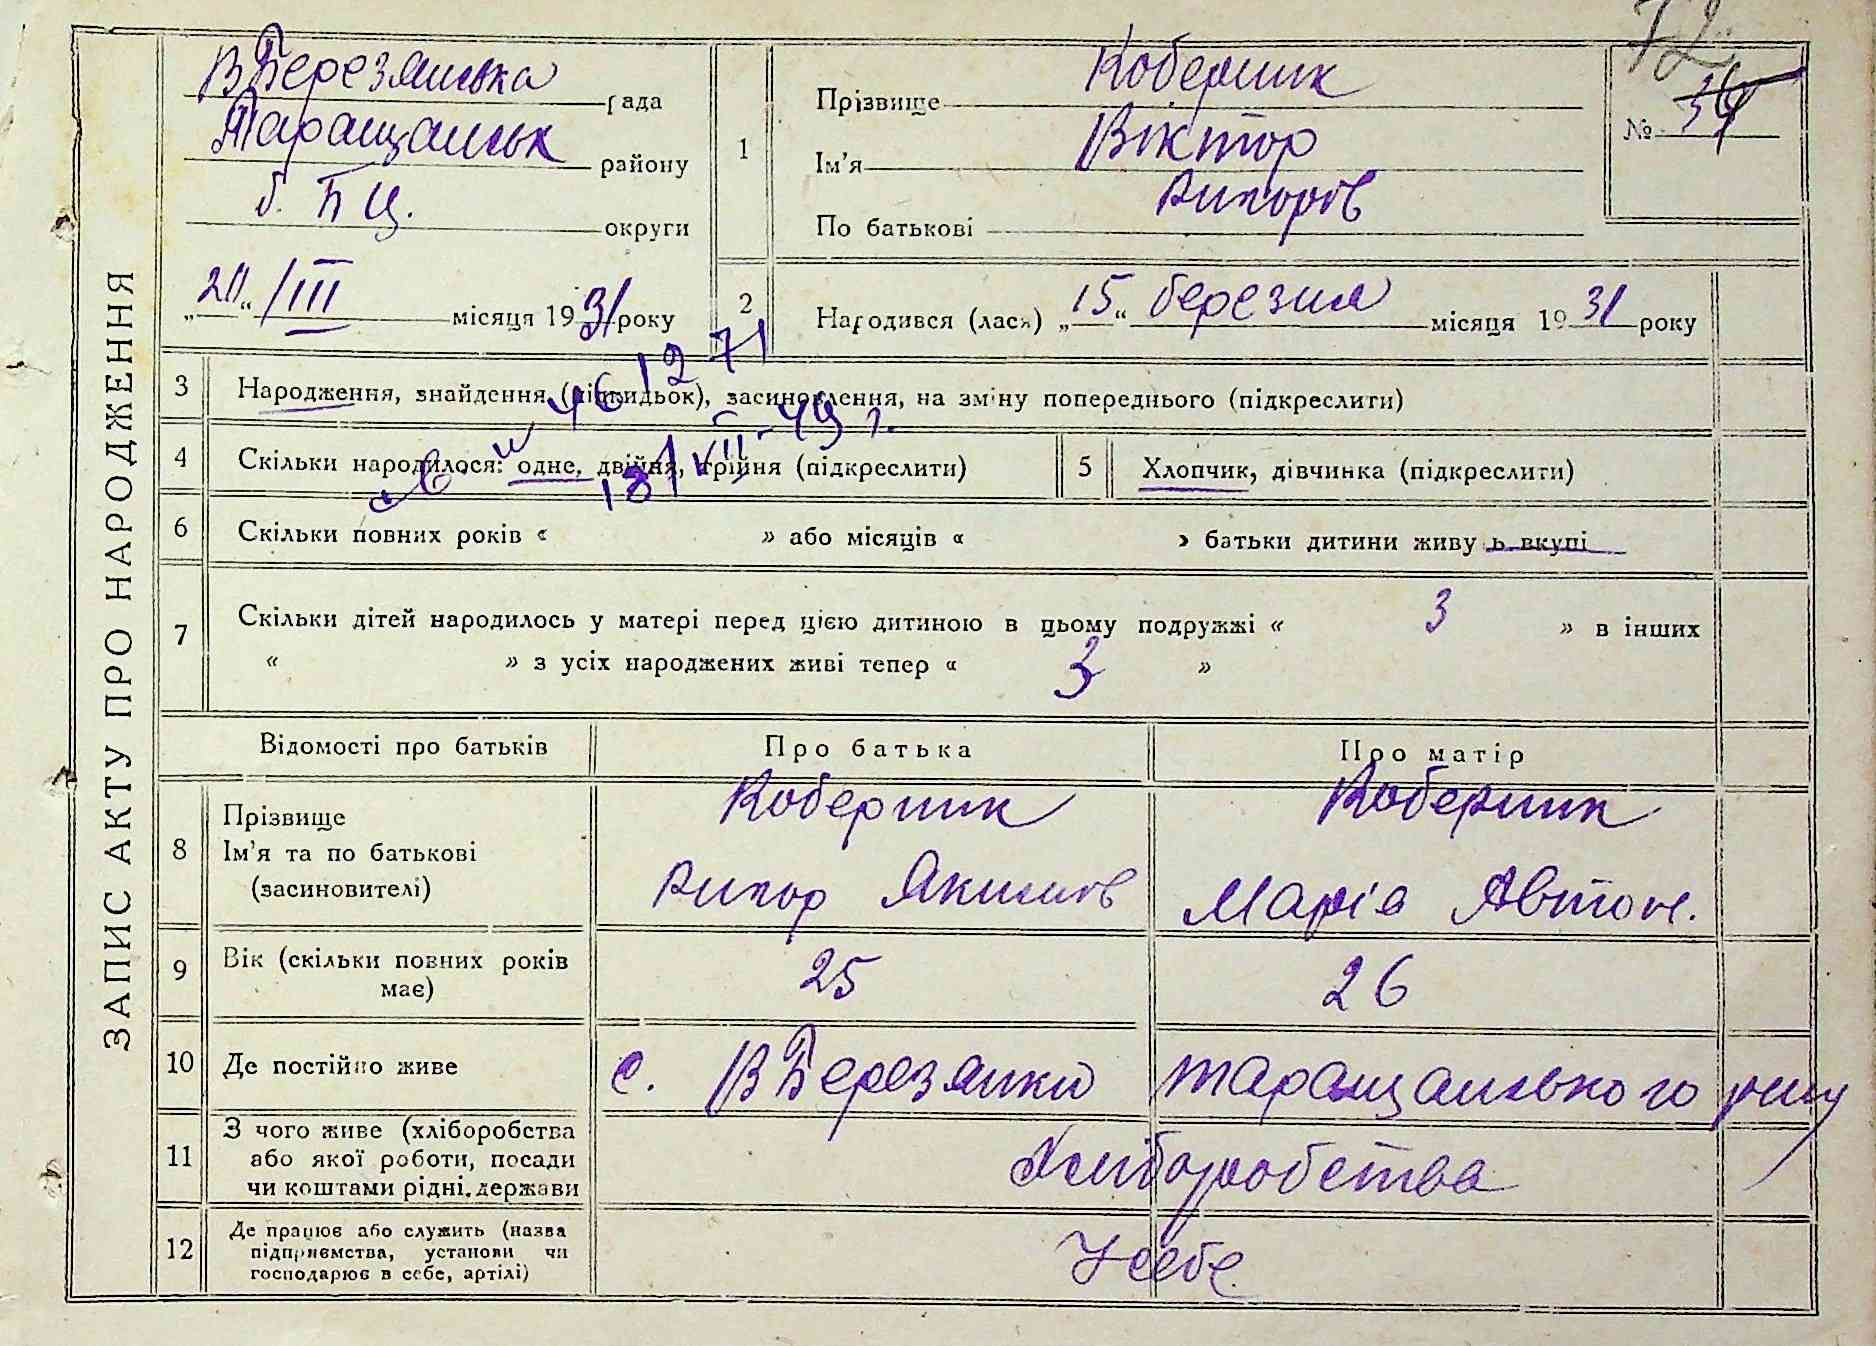 72
ЗАПИС АКТУ ПРО НАРОДЖЕННЯ
В Березянська рада
Таращанськ району
б. БЦ. округи
„20“ /III місяця 1931 року
1
Прізвище Коберник
Ім'я Віктор
По батькові Никоров
№ 34
2
Народився (лася) „15“ березня місяця 1931 року
3 Народження, знайдення (підкидьок), засиновлення, на зміну попереднього (підкреслити)
4 Скільки народилося: одне, двійня, трійня (підкреслити)
5 Хлопчик, дівчинка (підкреслити)
461271
18/VII-49 г.
6 Скільки повних років « » або місяців « » батьки дитини живуть вкупі
7 Скільки дітей народилось у матері перед цією дитиною в цьому подружжі « 3 » в інших
« » з усіх народжених живі тепер « 3 »
Відомості про батьків
Про батька
Про матір
8 Прізвище
Ім'я та по батькові
(засиновителі)
Коберник
Никор Якимов
Коберник
Марія Автон.
9 Вік (скільки повних років має)
25
26
10 Де постійно живе
с. В Березянки Таращанського р-ну
11 З чого живе (хліборобства
або якої роботи, посади
чи коштами рідні, держави
Хліборобства
12 Де працює або служить (назва
підприємства, установи чи
господарює в себе, артілі)
У себе